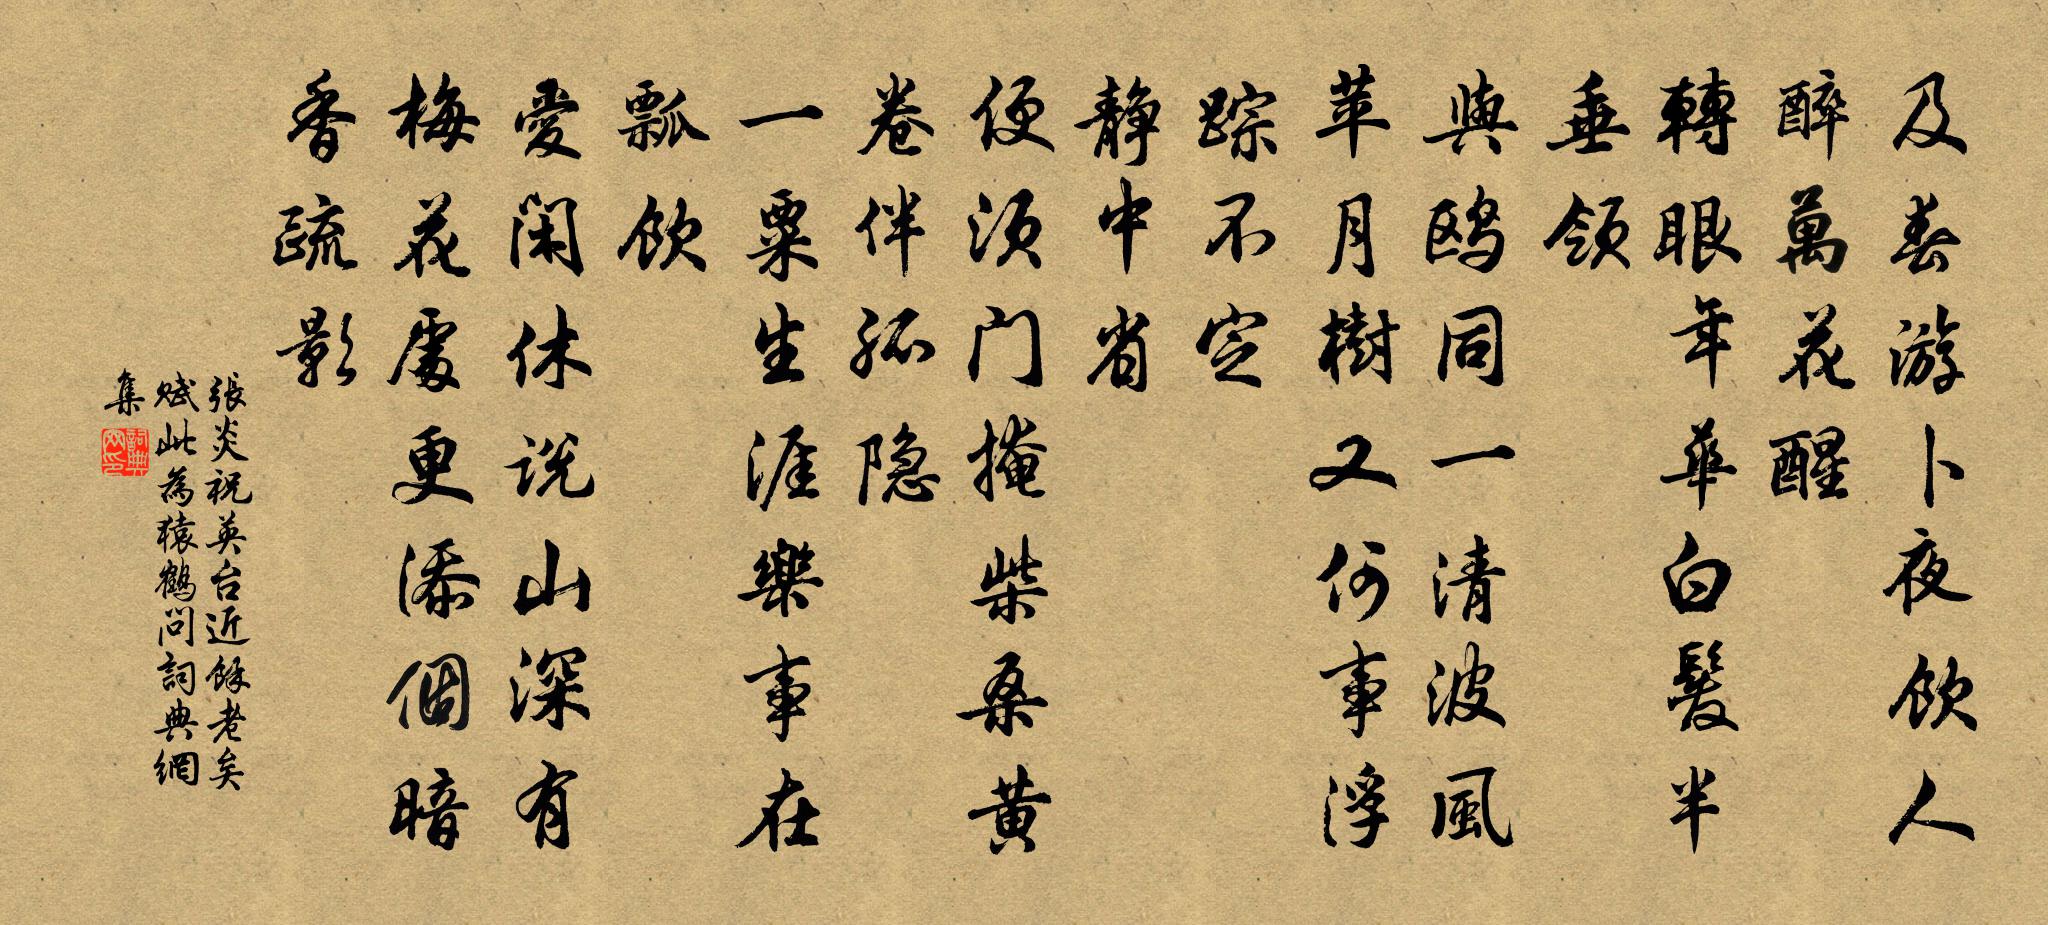 及春游卜夜飲人
醉萬花醒
轉眼年華白髮半
垂領
與鷗同一清波風
苹月樹又何事浮
踪不定
静中省
便須门掩柴桑黄
卷伴孤隐
一粟生涯樂事在
瓢飲
愛閑休说山深有
梅花處更添個暗
香疏影
張炎祝英台近餘老矣
賦此為猿鶴問詞典網
集
詞典
网印